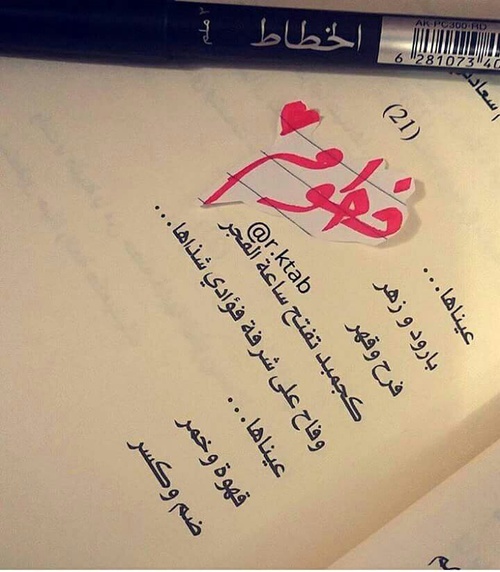 الخطاط
٢ ملم
AK-PC300-RD
6 281073 40
(21)
فطوم
@r.ktab
عيناها...
بارود و زهر
فرح وقهر
كجميد تفتح ساعة الفجر
وفاح على شرفة فؤادي شذاها...
عيناها...
قهوة وخمر
ضم وكسر